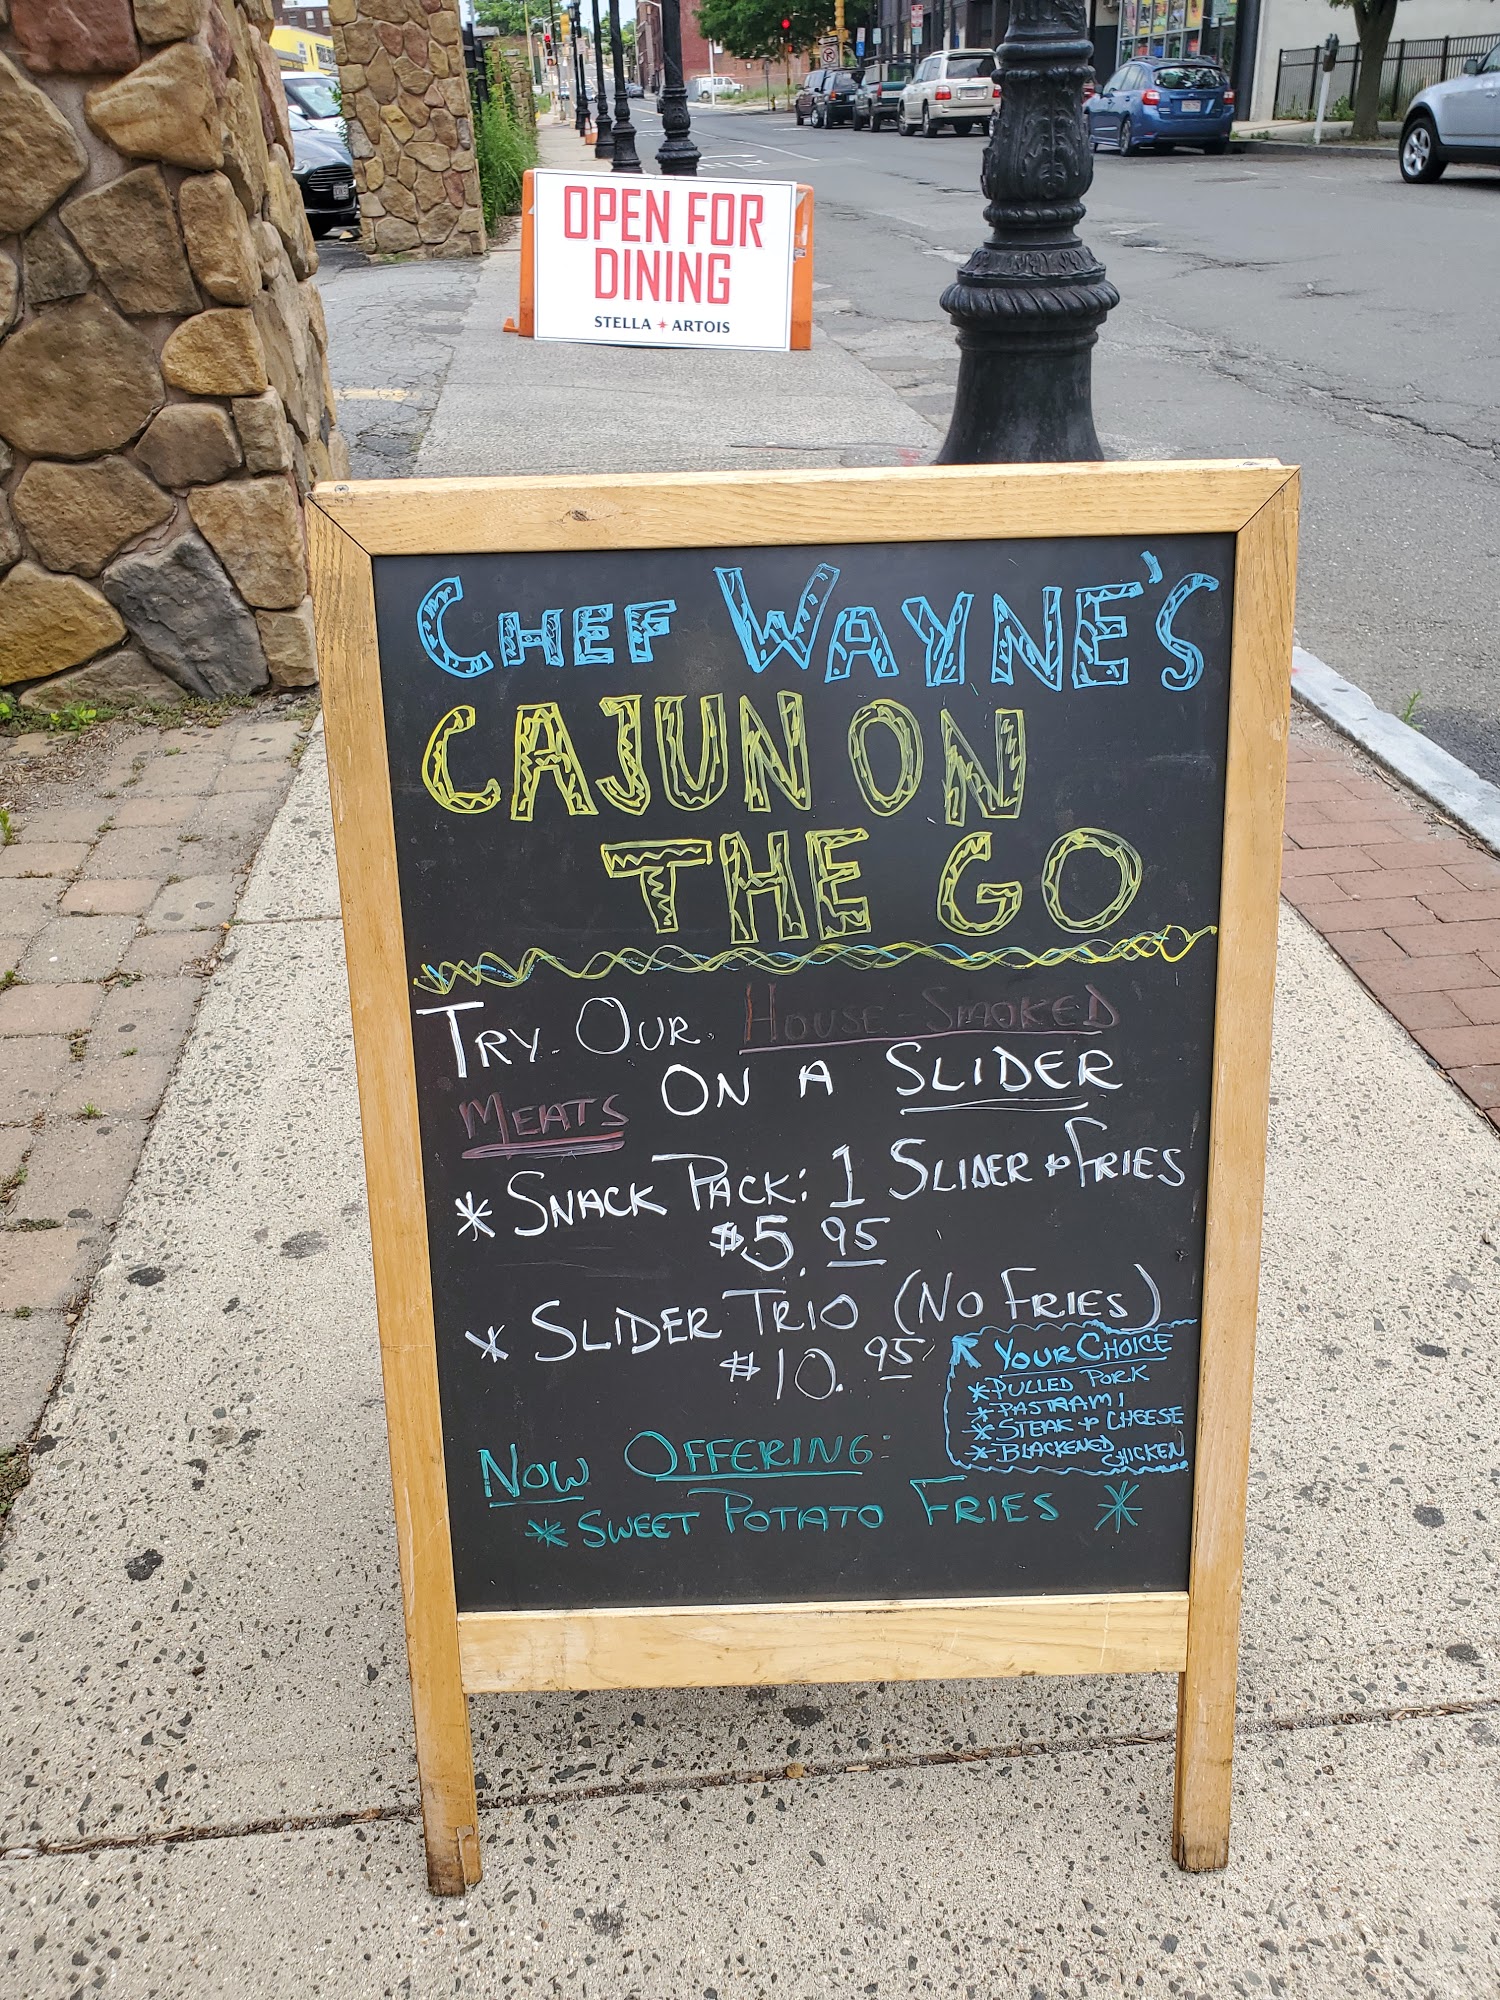 OPEN FOR
DINING
STELLA ARTOIS
CHEF WAYNE'S
CAJUN ON
THE GO
TRY OUR HOUSE-SMOKED
MEATS ON A SLIDER
* SNACK PACK: 1 SLIDER + FRIES
$5.95
* SLIDER TRIO (NO FRIES)
$10.95
YOUR CHOICE
* PULLED PORK
* PASTRAMI
* STEAK + CHEESE
* BLACKENED
CHICKEN
NOW OFFERING:
* SWEET POTATO FRIES *